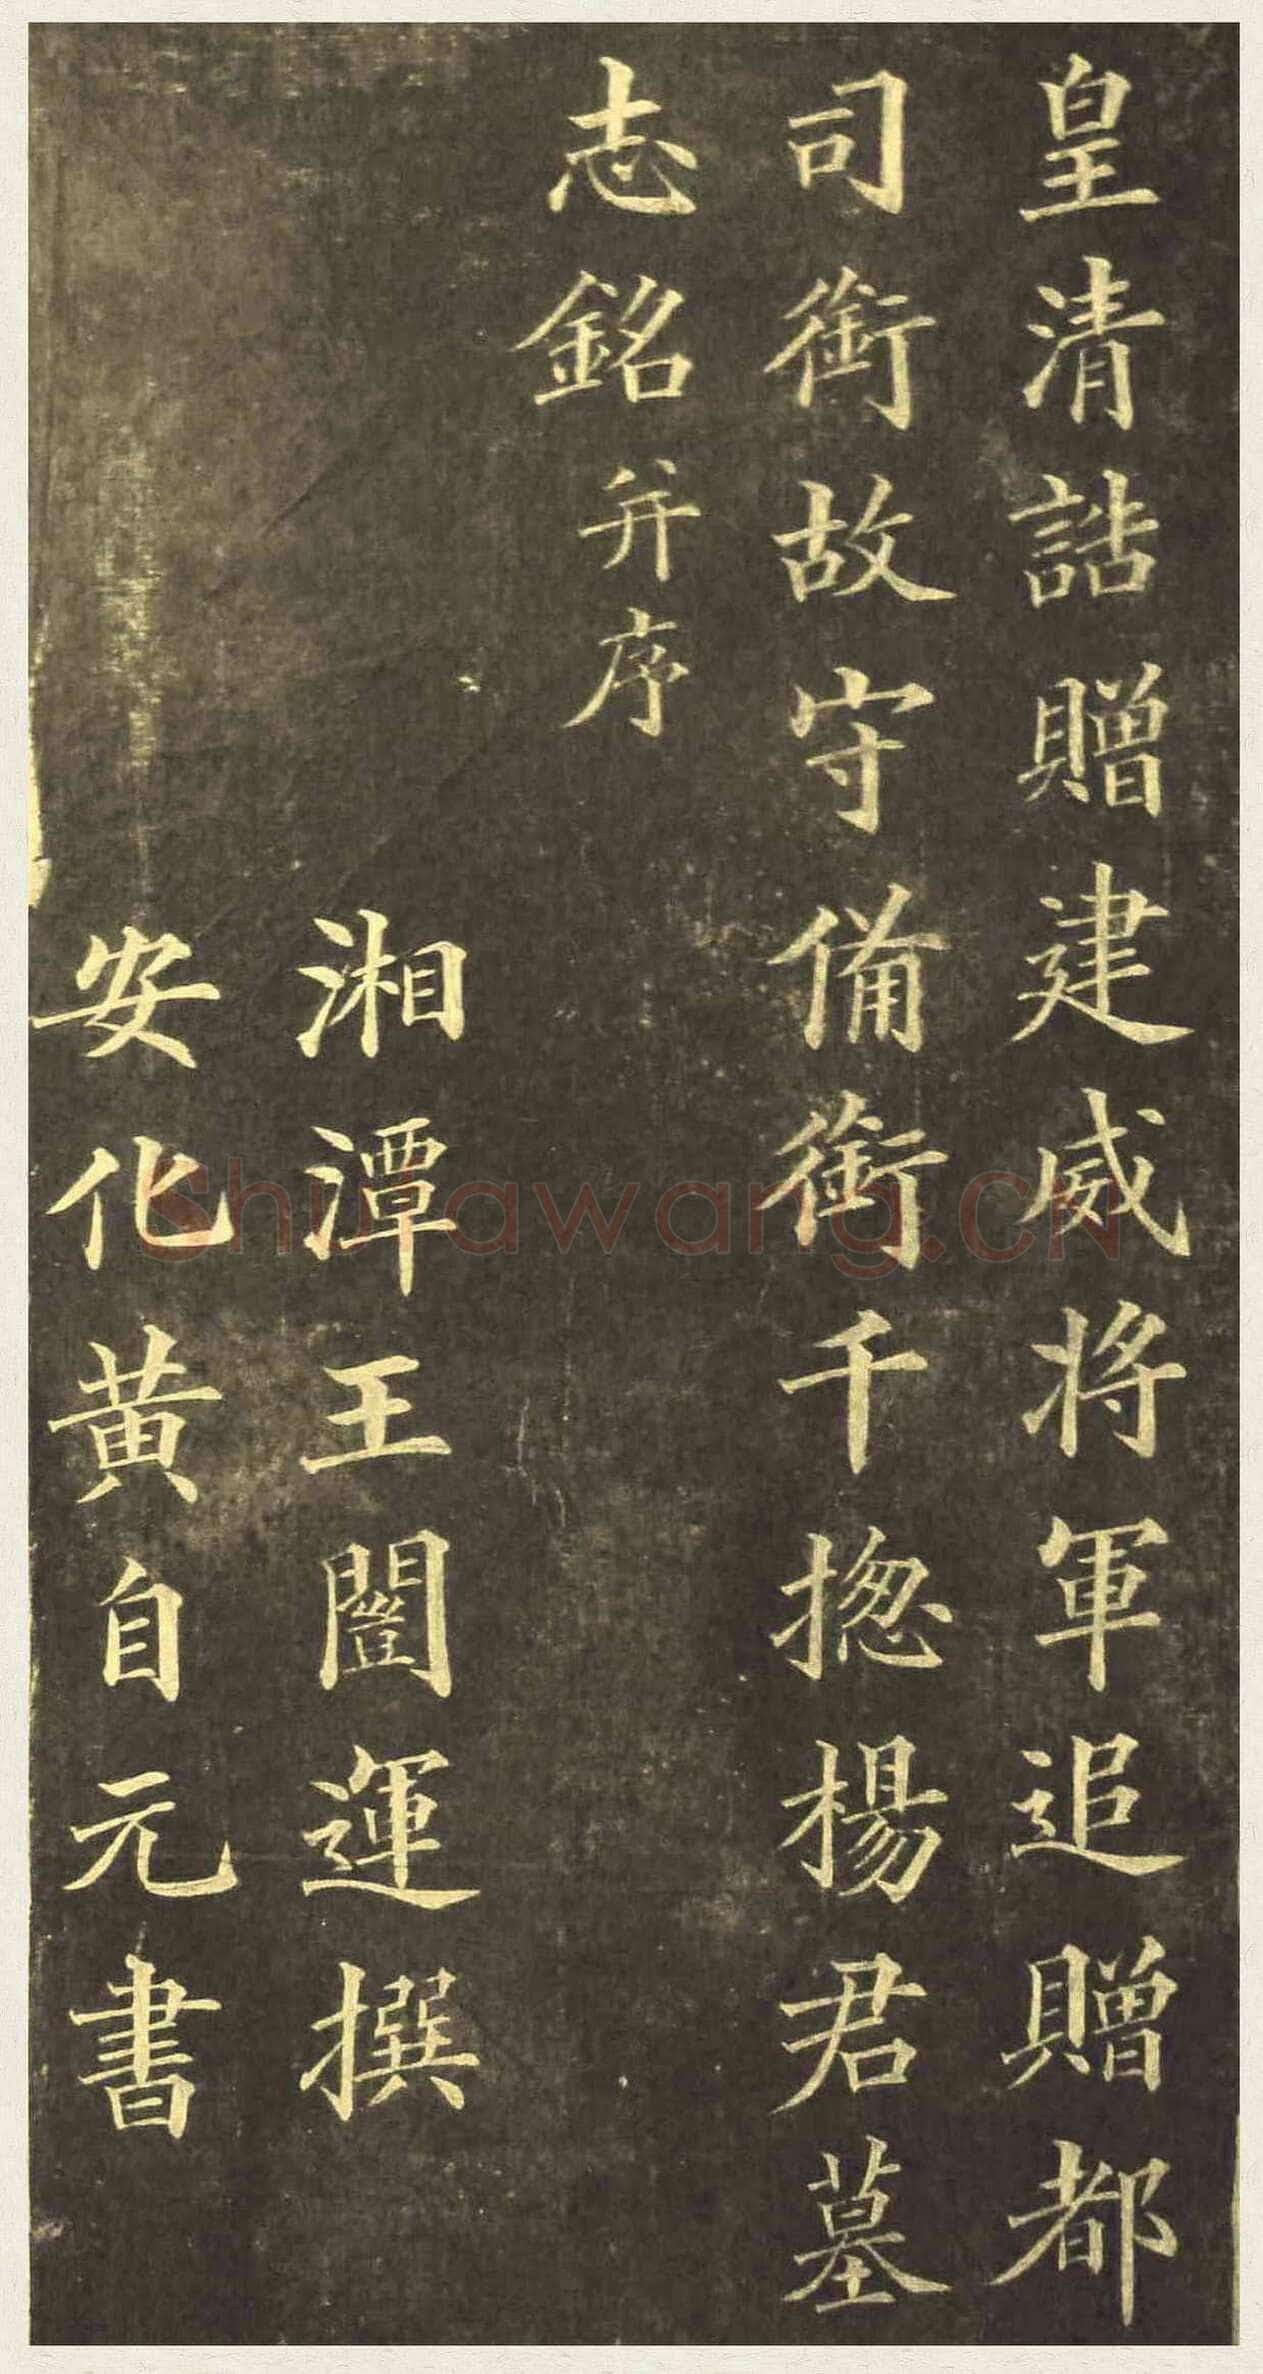 皇清誥贈建威將軍追贈都
司銜故守備銜千揔楊君墓
志銘并序
湘潭王闓運撰
安化黃自元書
Shufawang.CN